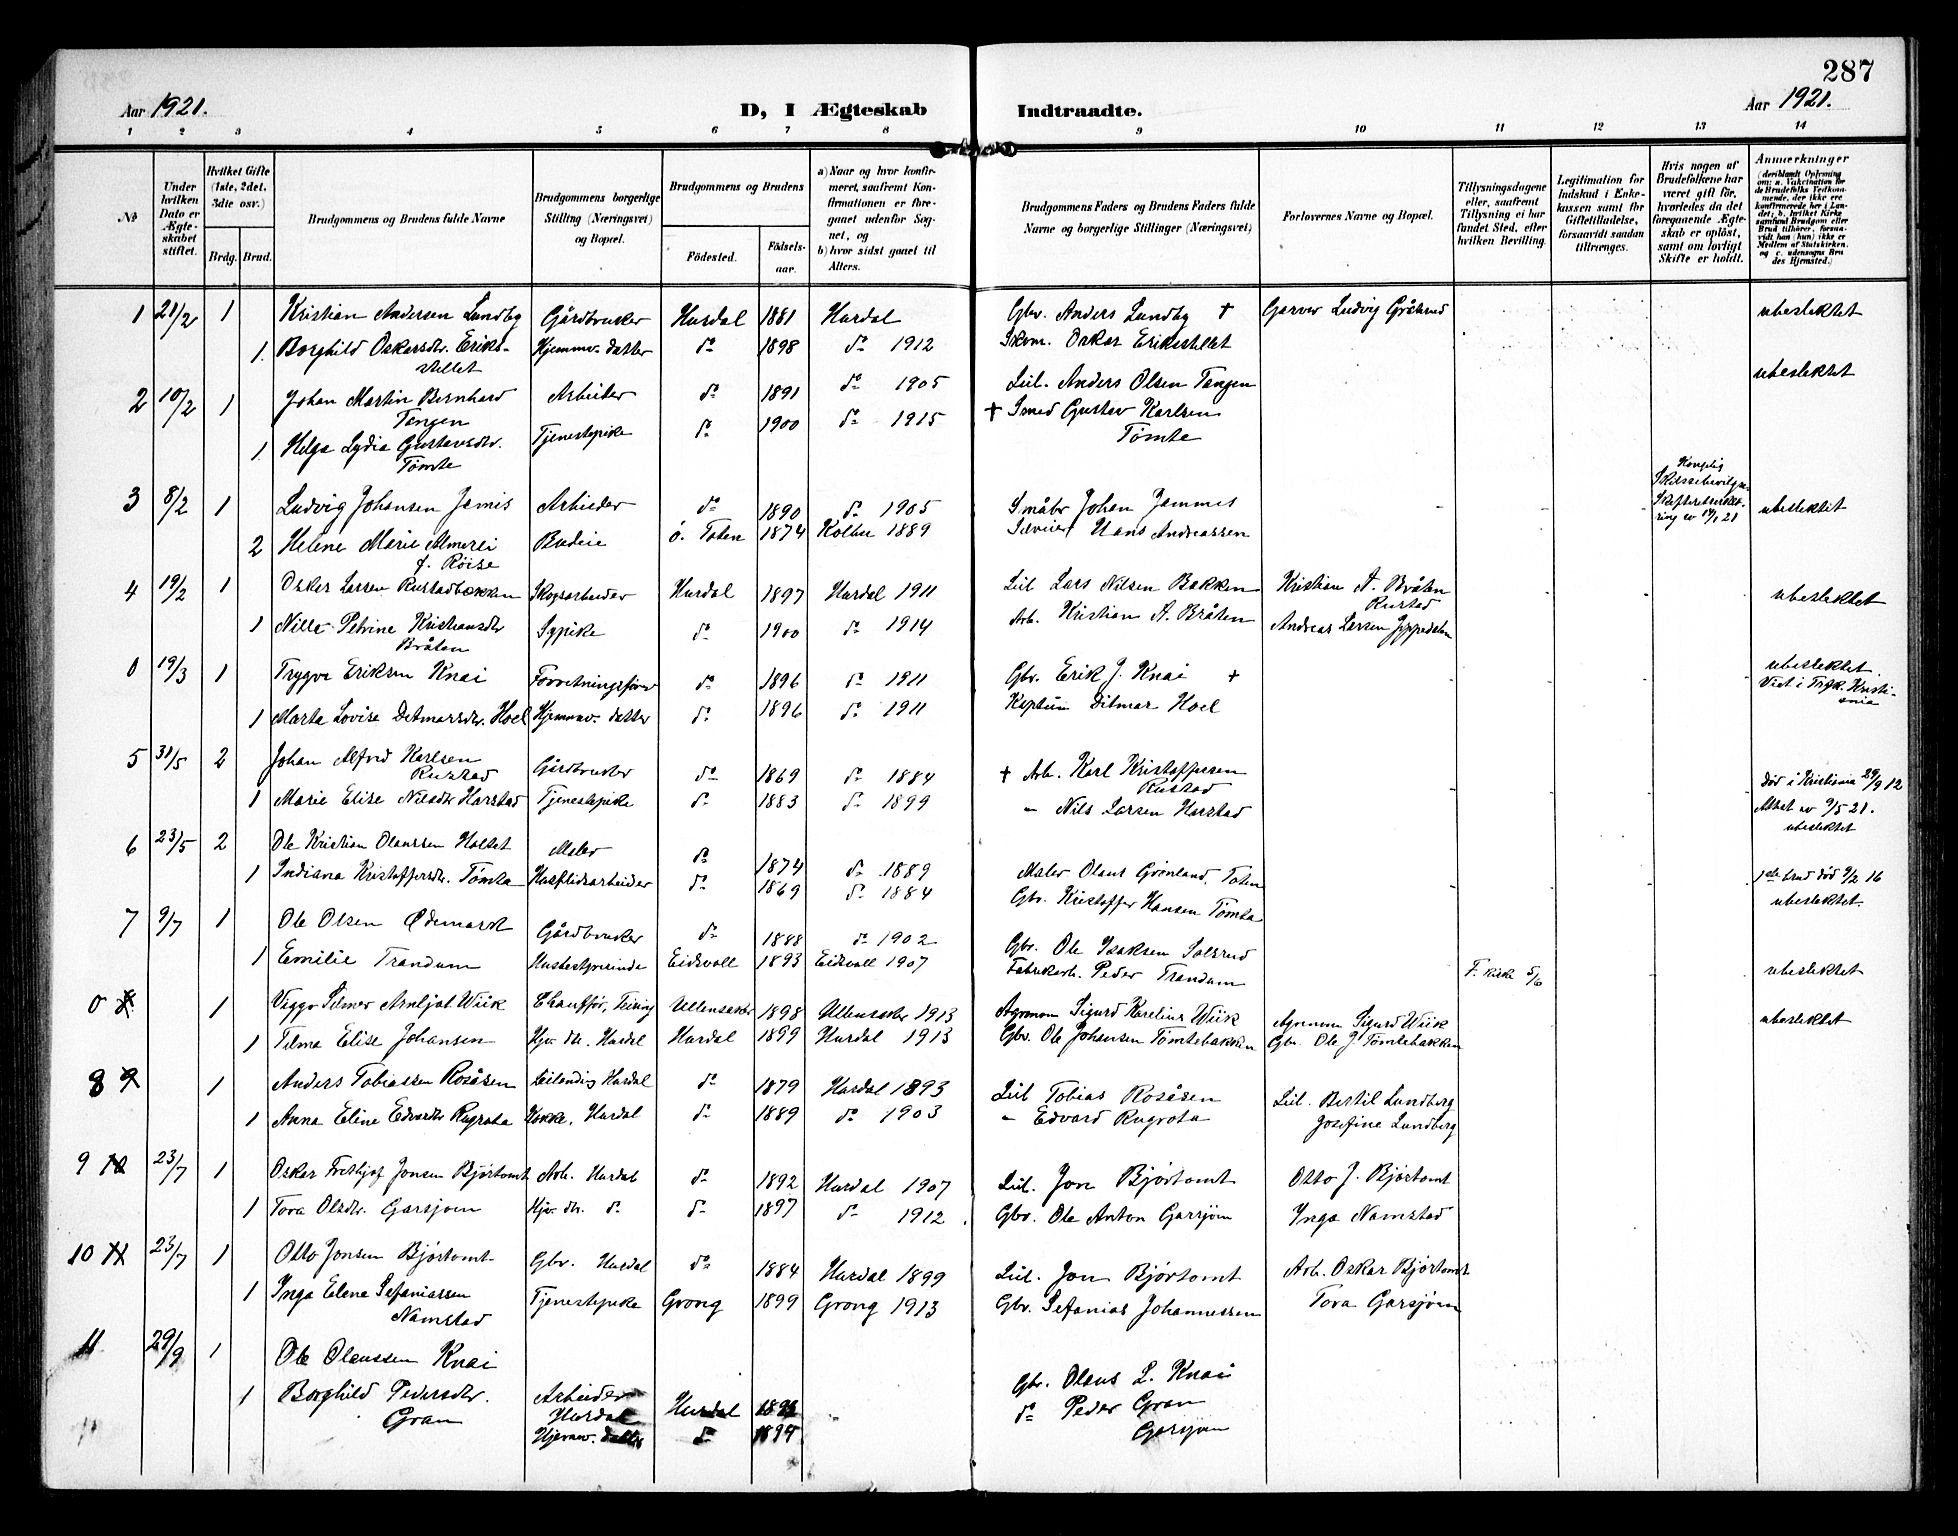 287
Aar 1921.
D, I Ægteskab Indtraadte.
Aar 1921.
1 2 3 4 5 6 7 8 9 10 11 12 13 14
No
Under hvilken Dato er Ægteskabet stiftet.
Hvilket Gifte (1ste, 2det, 3die osv.)
Brdg. Brud.
Brudgommens og Brudens fulde Navne
Brudgommens borgerlige Stilling (Næringsvei) og Bopæl.
Brudgommens og Brudens
Födested.
Födselsaar.
a) Naar og hvor konfirmeret, saafremt Konfirmationen er foregaaet udenfor Sognet, og
b) hvor sidst gaaet til Alters.
Brudgommens Faders og Brudens Faders fulde Navne og borgerlige Stillinger (Næringsvei)
Forlovernes Navne og Bopæl.
Tillysningsdagene eller, saafremt Tillysning ei har fundet Sted, efter hvilken Bevilling.
Legitimation for Indskud i Enkekassen samt for Giftetilladelse, forsaavidt saadan tiltrænges.
Hvis nogen af Brudefolkene har været gift før, hvorledes da det foregaaende Ægteskab er opløst, samt om lovligt Skifte er holdt.
Anmerkninger
1 21/2 1 Kristian Andersen Lundby Gårdbruker Hurdal 1881 Hurdal Gbr. Anders Lundby + Garver Ludvig Gråbrud ubeslektet
1 Borghild Oskarsdtr. Eriks- Hjemmev. datter do 1898 do 1912 Skom. Oskar Erikstellet
stellet
2 10/2 1 Johan Martin Bernhard Arbeider do 1891 do 1905 Leil. Anders Olsen Tangen ubeslektet
Tangen
1 Helga Lydia Gustavsdtr. Tjenestepike do 1900 do 1915 + Smed Gustav Karlsen
Tømte Tømte
3 8/2 1 Ludvig Johansen Jamis Arbeider do 1890 do 1905 Småbr Johan Jammes Kongelig ubeslektet
2 Helene Marie Almerei Budeie ø. Toten 1874 Kolbu 1889 Hans Andreassen
f. Röise
4 19/2 1 Oskar Larsen Rustadbakken Skogsarbeider Hurdal 1897 Hurdal 1911 Leil Lars Nilsen Bakken Kristian A. Bråten ubeslektet
Rustad
1 Nille Petrine Kristiansdtr Sypike do 1900 do 1914 Arb. Kristian A. Bråten Andreas Larsen
Bråten
0 19/3 1 Trygve Eriksen Knai Forretningsfører do 1896 do 1911 Gbr. Erik J. Knai + ubeslektet
Viet i Kristiania
1 Marta Lovise Detmarsdtr. Hoel Hjemmev. datter do 1896 do 1911 Ditmar Hoel
5 31/5 2 Johan Alfred Karlsen Gårdbruker do 1869 do 1884 + Arb. Karl Kristoffersen død i Kristiania 29/9 12
Rustad Rustad
1 Marie Elise Nilsdtr Harstad Tjenestepike do 1883 do 1899 " Nils Larsen Harstad Attest av 9/5 21.
ubeslektet
6 23/5 2 Ole Kristian Olaussen Holtet Maler do 1874 do 1889 Maler Olaus Grønland, Toten 1ste brud död 9/2 16
1 Indiana Kristoffersdtr. Tømta Husflidsarbeider do 1869 do 1884 Gbr. Kristoffer Hansen Tømta ubeslektet.
7 9/7 1 Ole Olsen Ødemark Gårdbruker do 1888 do 1902 Gbr. Ole Isaksen Solsrud
1 Emilie Trandum Husbestyrerinde Eidsvoll 1893 Eidsvoll 1907 Fabrikarb. Peder Trandum 5/6 ubeslektet
0 8 1 Viggo Hilmer Arnljot Wiik Chauffør, Ullensaker 1898 Ullensaker 1913 Agronom Sigurd Karelius Wiik Agronom Sigurd Wiik ubeslektet
1 Tilma Elise Johansen Hjv. dtr. Hurdal Hurdal 1899 Hurdal 1913 Gbr. Ole Johansen Tømtebakken Gbr. Ole J Tømtebakken
8 9 1 Anders Tobiassen Rosåsen Leilending Hurdal do 1879 Hurdal 1893 Leil Tobias Rosåsen Leil. Bertil Lundberg
1 Anna Eline Edvardsdtr Rugrota Kokke, Hurdal do 1889 do 1903 " Edvard Rugrota Josefine Lundberg
9 10 23/7 1 Oskar Frithjof Jonsen Bjørtomt Arb. Hurdal do 1892 Hurdal 1907 Leil. Jon Bjørtomt Otto J. Bjørtomt
1 Tora Olsdtr. Garsjøen Hjv. dtr. do do 1897 do 1912 Gbr. Ole Anton Garsjøen Inga Namstad
10 11 23/7 1 Otto Jonsen Bjørtomt Gbr. Hurdal do 1884 Hurdal 1899 Leil. Jon Bjørtomt Arb. Oskar Bjørtomt
1 Inga Elene Sefaniassen Tjenestepike Grong 1899 Grong 1913 Gbr. Sefanias Johannessen Tora Garsjøen
Namstad
11 29/9 1 Ole Olaussen Knai Arbeider Hurdal Hurdal Gbr. Olaus L. Knai
1 Borghild Pedersdtr. Hjemmev. datter do 1894 do Peder Gran
Gran Garsjøen